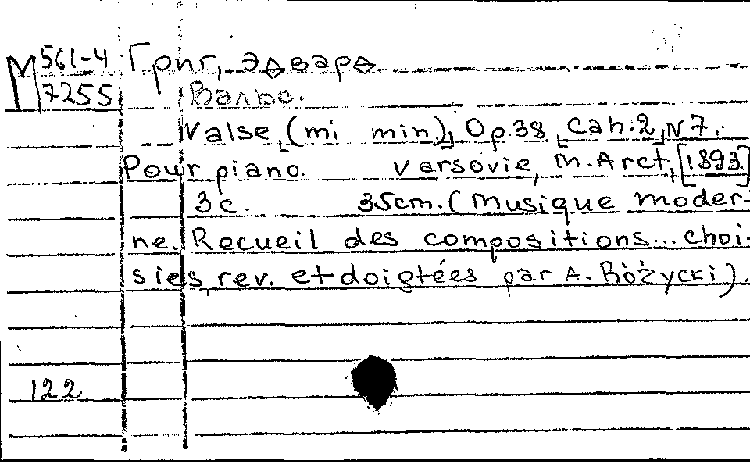 М 561-4 Григ, Эдвард
7255 Вальс.
Valse, (mi min.), Op.38, Cah.2, N7.
Pour piano. Varsovie, M. Arct, [1893]
3 c. 35cm. (Musique moder-
ne. Recueil des compositions... choi-
sies, rev. et doigtées par A. Różycki).
122